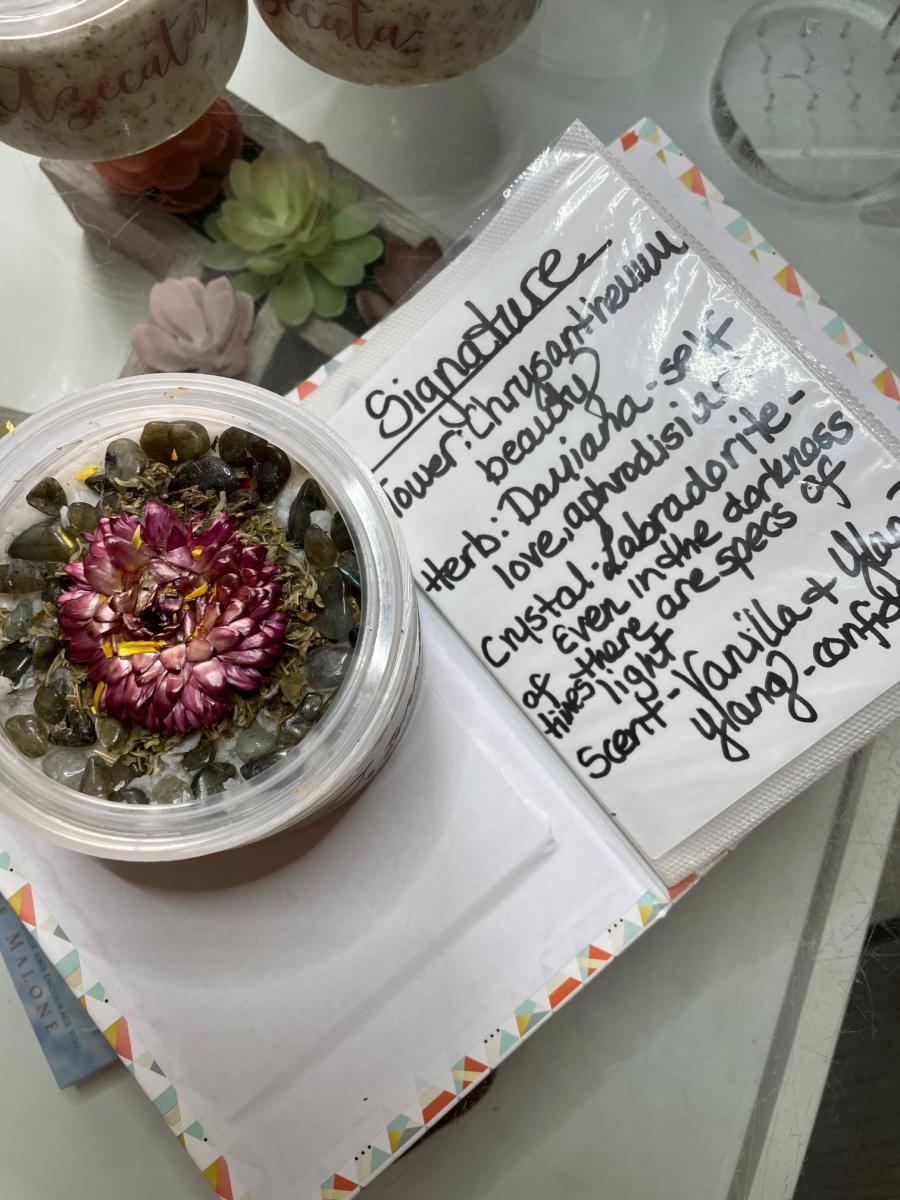 Azecata
zecata
Signature
lower: Chrysantineuum
beauty
Herb: Damiana - self
love, aphrodisi
Crystal: Labradorite -
Even in the darkness
of times there are specs of
light
Scent - Vanilla + Ylan
Ylang - confid
MALONE
AND ENCOURAGE YOU